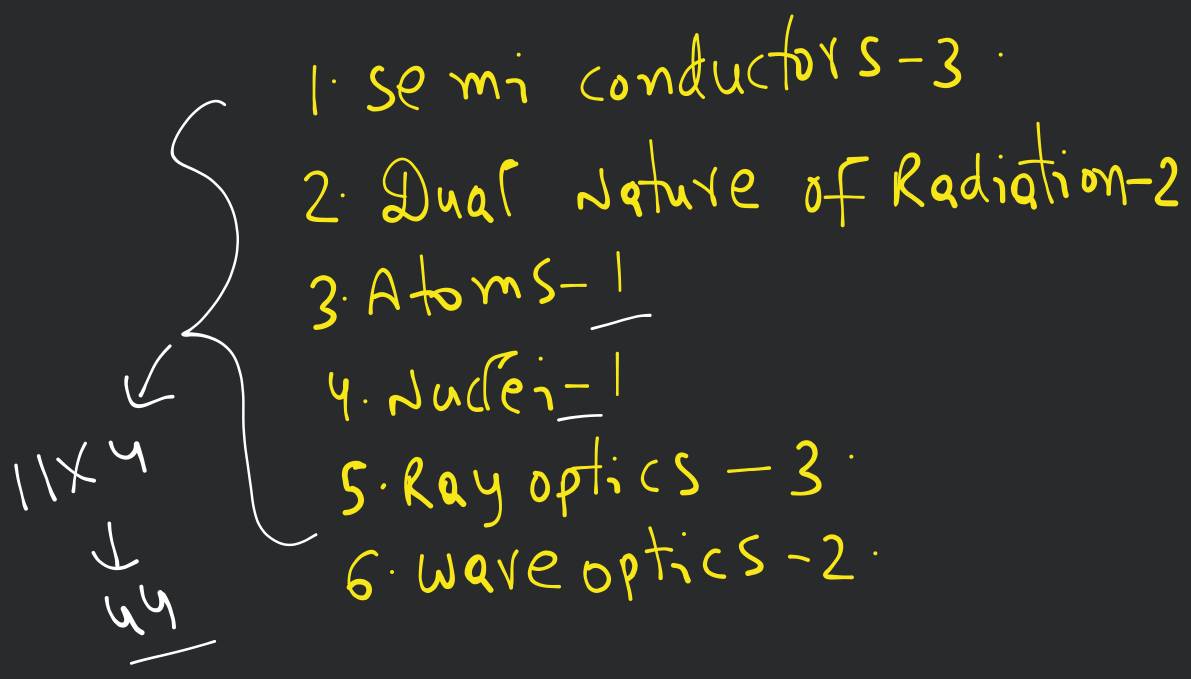 1. semi conductors-3
2. Dual Nature of Radiation-2
3. Atoms-1
4. Nuclei-1
5. Ray optics-3
6. wave optics-2
11x4
44